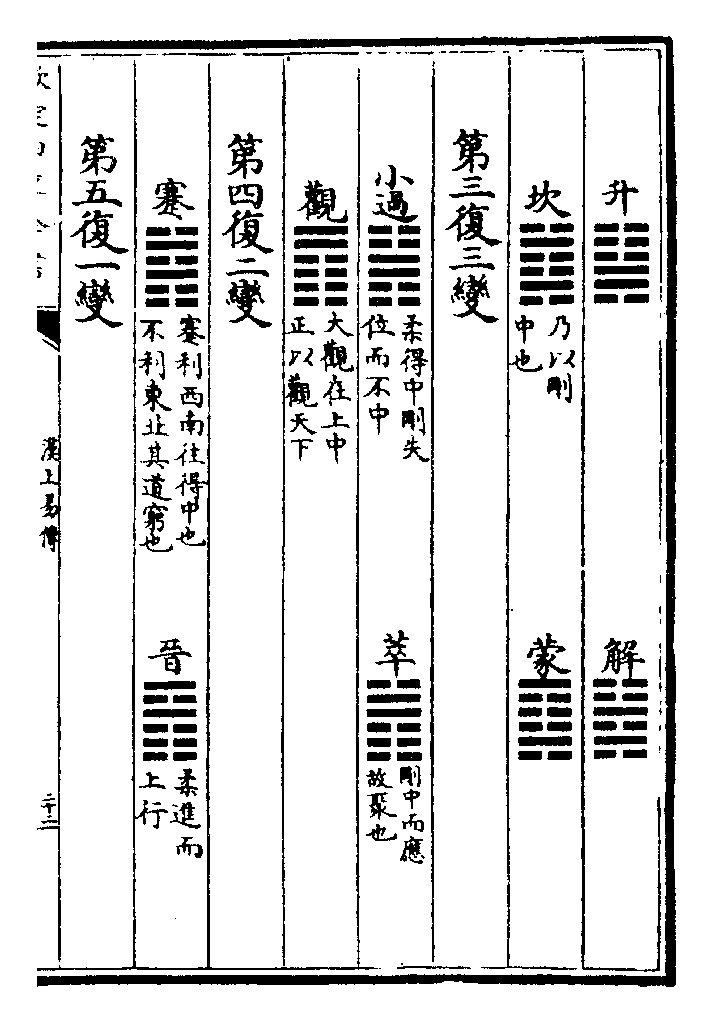 升
解
坎
乃以剛
中也
蒙
第三復三變
小過
柔得中剛失
位而不中
萃
剛中而應
故聚也
觀
大觀在上中
正以觀天下
第四復二變
蹇
蹇利西南往得中也
不利東北其道窮也
晉
柔進而
上行
第五復一變
漢上易傳